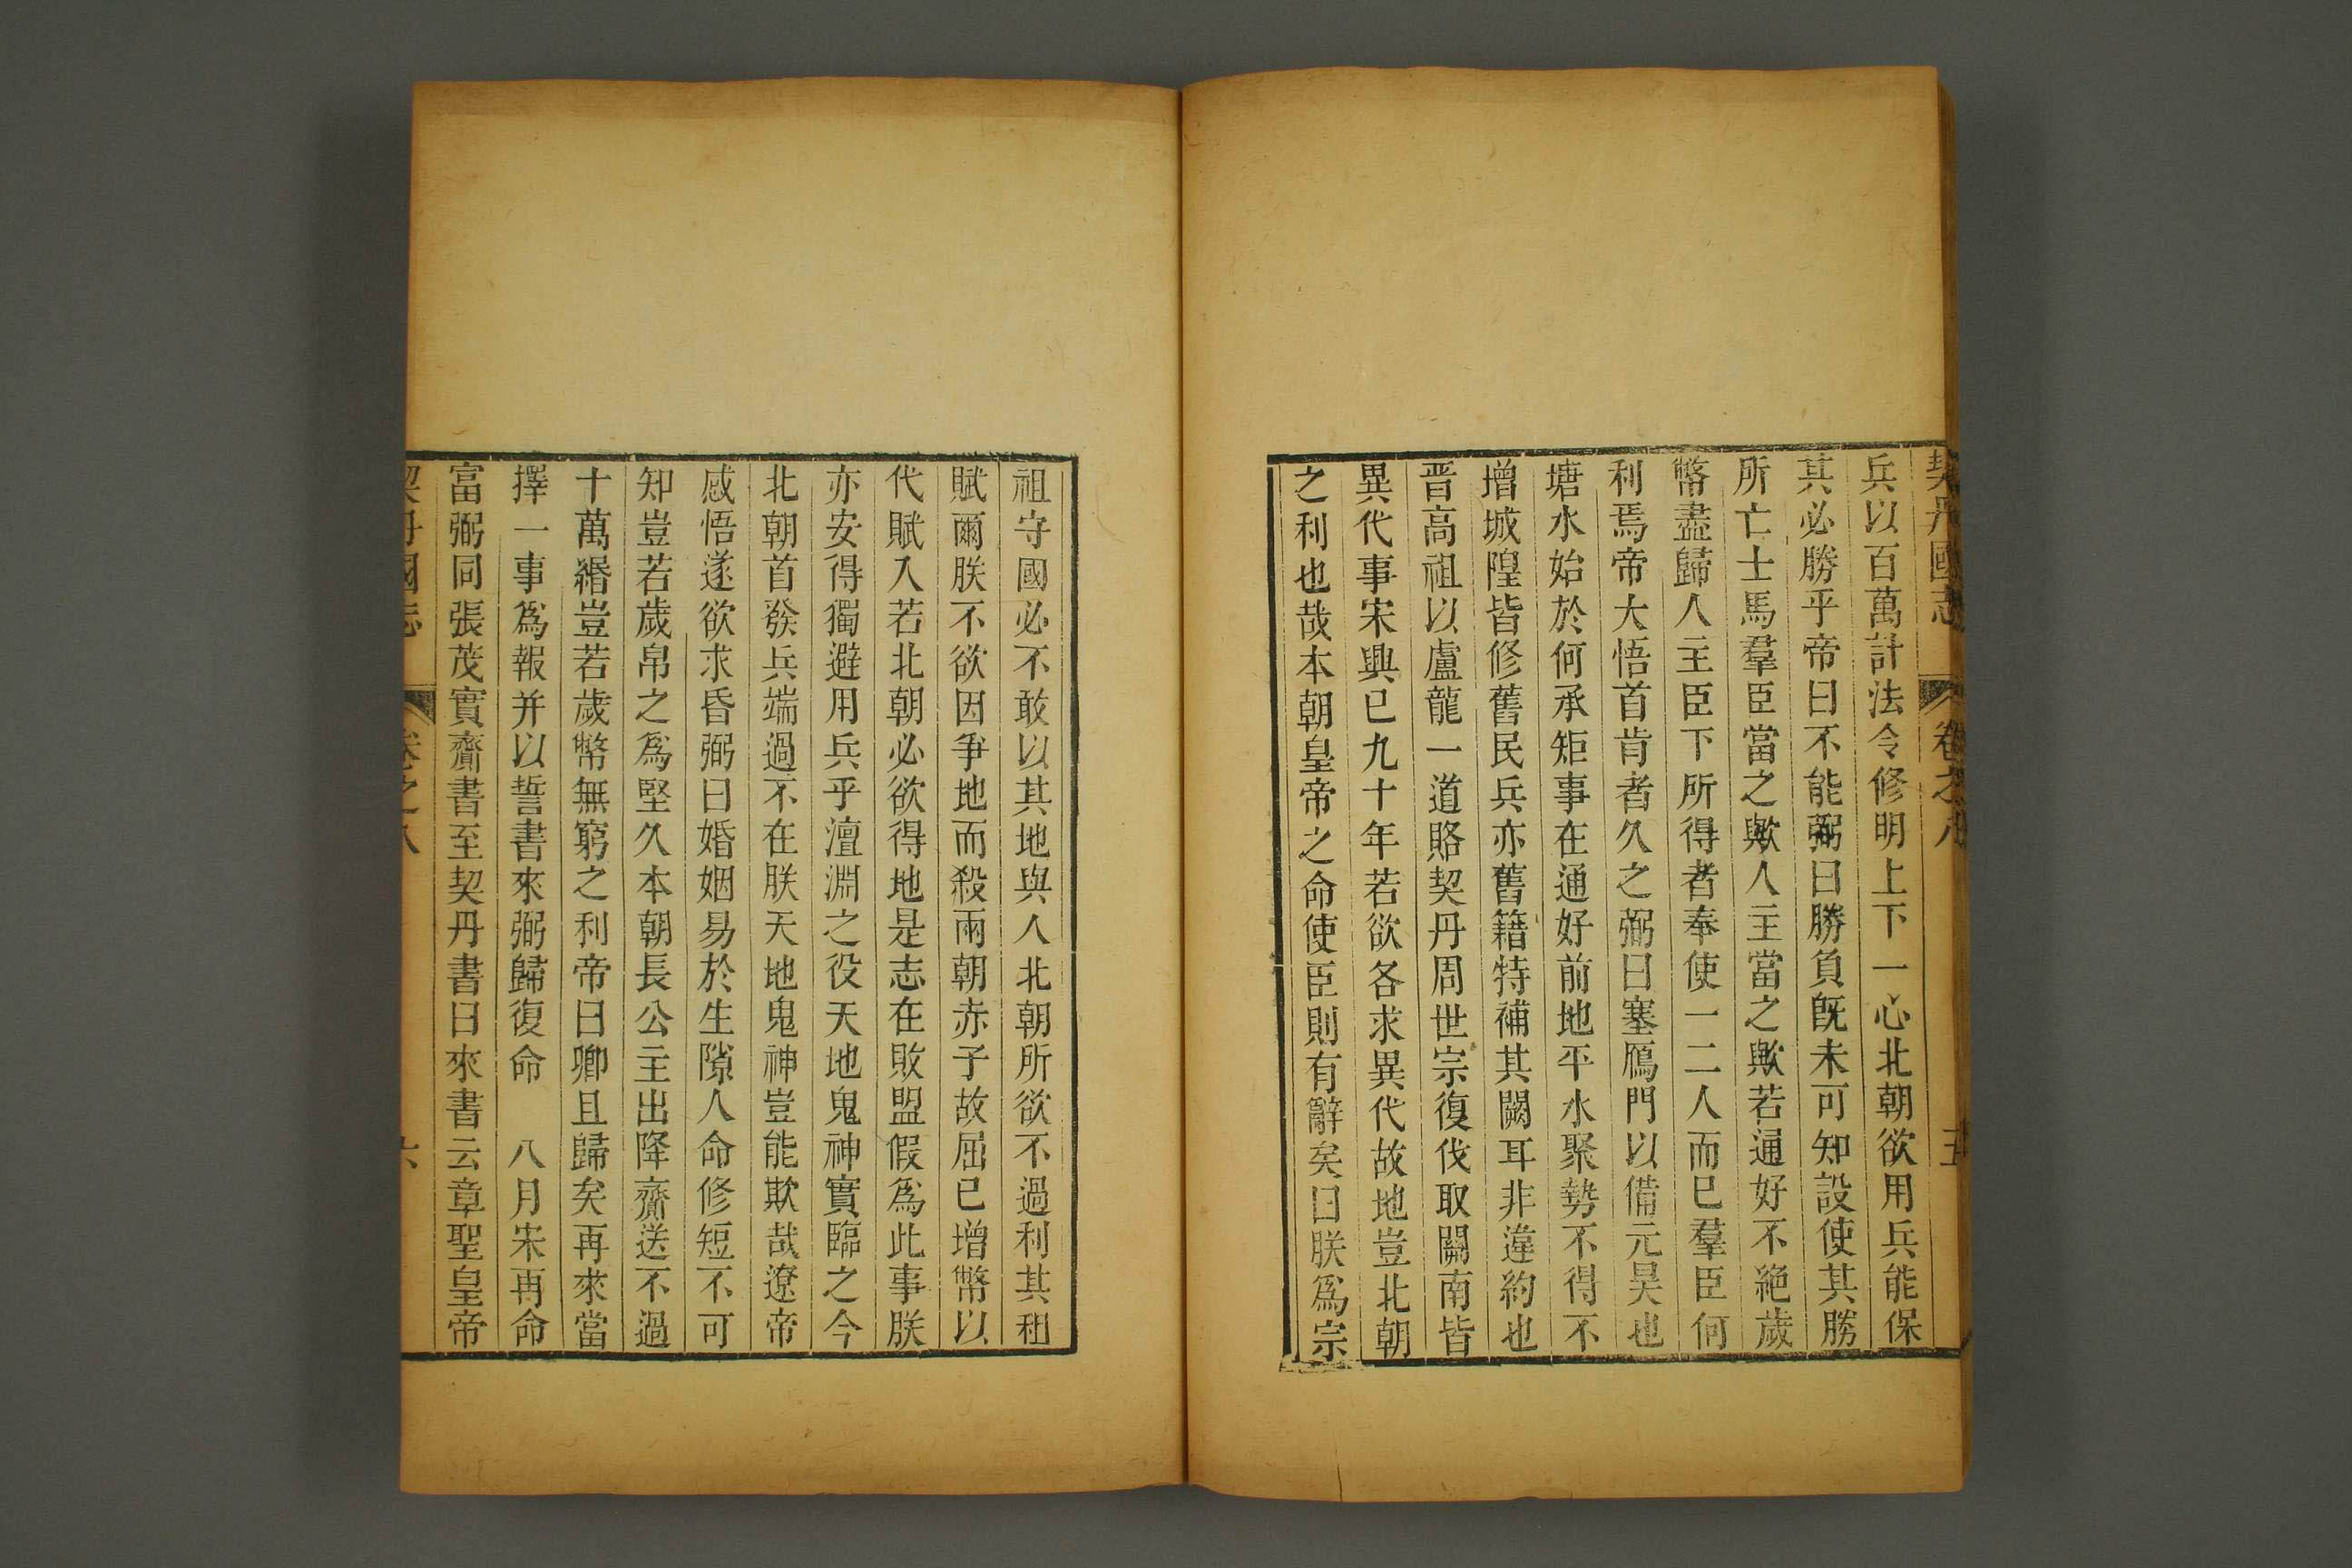 契丹國志 卷之八 五
兵以百萬計法令修明上下一心北朝欲用兵能保
其必勝乎帝曰不能弼曰勝負旣未可知設使其勝
所亡士馬羣臣當之歟人主當之歟若通好不絶歲
幣盡歸人主臣下所得者奉使一二人而已羣臣何
利焉帝大悟首肯者久之弼曰塞鴈門以備元昊也
塘水始於何承矩事在通好前地平水聚勢不得不
增城隍皆修舊民兵亦舊籍特補其闕耳非違約也
晋高祖以盧龍一道賂契丹周世宗復伐取關南皆
異代事宋興已九十年若欲各求異代故地豈北朝
之利也哉本朝皇帝之命使臣則有辭矣曰朕爲宗
祖守國必不敢以其地與人北朝所欲不過利其租
賦爾朕不欲因爭地而殺兩朝赤子故屈已增幣以
代賦入若北朝必欲得地是志在敗盟假爲此事朕
亦安得獨避用兵乎澶淵之役天地鬼神實臨之今
北朝首發兵端過不在朕天地鬼神豈能欺哉遼帝
感悟遂欲求昏弼曰婚姻易於生隙人命修短不可
知豈若歲帛之爲堅久本朝長公主出降齎送不過
十萬緡豈若歲幣無窮之利帝曰卿且歸矣再來當
擇一事爲報并以誓書來弼歸復命 八月宋再命
富弼同張茂實齎書至契丹書曰來書云章聖皇帝
契丹國志 卷之八 六